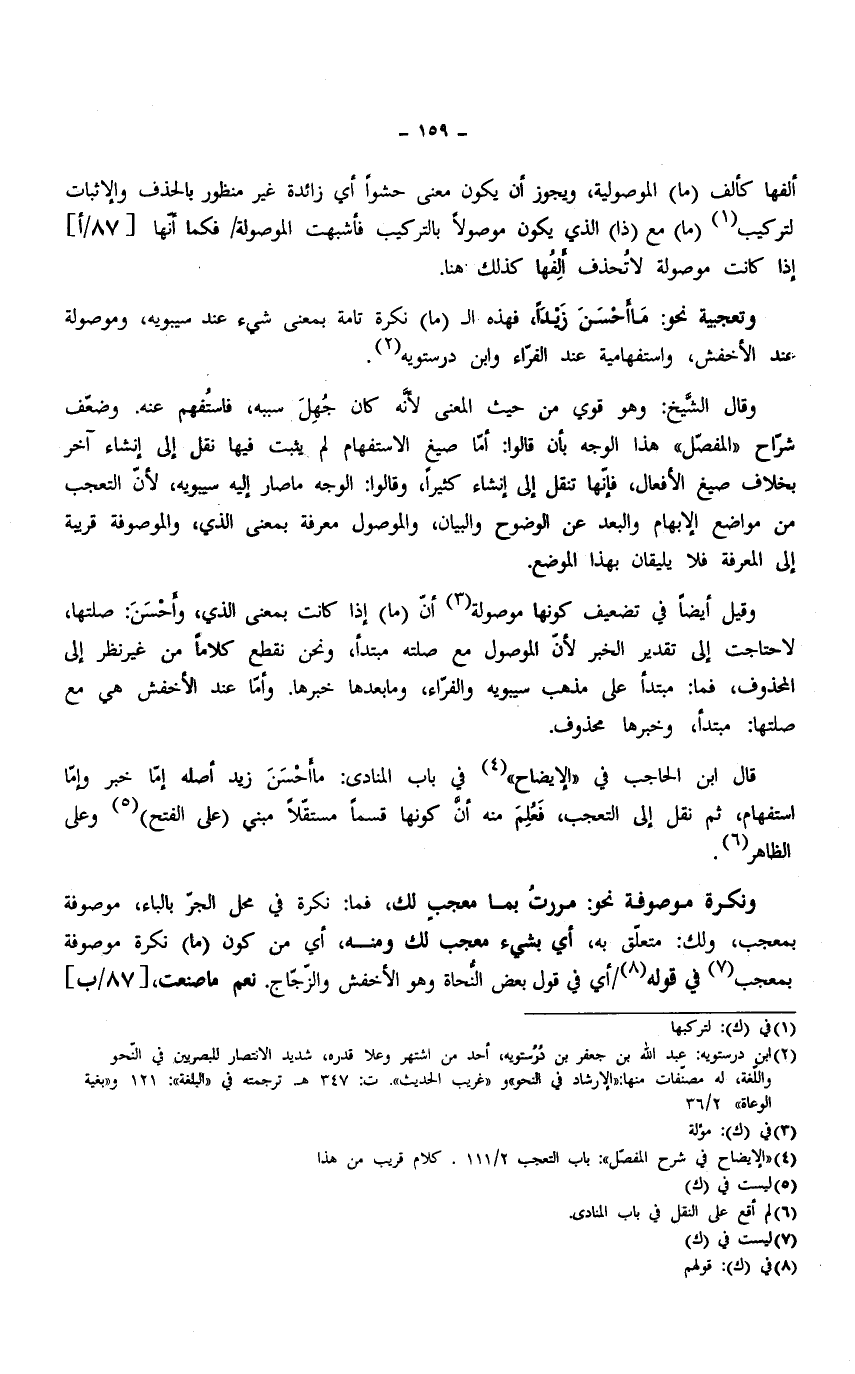 - ١٥٩ -
ألفها كألف (ما) الموصولية، ويجوز أن يكون معنى حشواً أي زائدة غير منظور بالحذف والإثبات
لتركيب(١) (ما) مع (ذا) الذي يكون موصولاً بالتركيب فأشبهت الموصولة/ فكما أنّها [٨٧/أ]
إذا كانت موصولة لاتُحذف أَلِفُها كذلك هنا.
وتعجبية نحو: مَاأَحْسَنَ زَيْداً، فهذه الـ (ما) نكرة تامة بمعنى شيء عند سيبويه، وموصولة
عند الأخفش، واستفهامية عند الفرّاء وابن درستويه(٢).
وقال الشَّيخ: وهو قوي من حيث المعنى لأنَّه كان جُهِلَ سببه، فاستُفهم عنه. وضعّف
شرّاح «المفصّل» هذا الوجه بأن قالوا: أمّا صيغ الاستفهام لم يثبت فيها نقل إلى إنشاء آخر
بخلاف صيغ الأفعال، فإنّها تنقل إلى إنشاء كثيراً، وقالوا: الوجه ماصار إليه سيبويه، لأنّ التعجب
من مواضع الإبهام والبعد عن الوضوح والبيان، والموصول معرفة بمعنى الذي، والموصوفة قريبة
إلى المعرفة فلا يليقان بهذا الموضع.
وقيل أيضاً في تضعيف كونها موصولة(٣) أنّ (ما) إذا كانت بمعنى الذي، وأَحْسَنَ: صلتها،
لاحتاجت إلى تقدير الخبر لأنّ الموصول مع صلته مبتدأ، ونحن نقطع كلاماً من غيرنظر إلى
المحذوف، فما: مبتدأ على مذهب سيبويه والفرّاء، ومابعدها خبرها. وأمّا عند الأخفش هي مع
صلتها: مبتدأ، وخبرها محذوف.
قال ابن الحاجب في «الإيضاح»(٤) في باب المنادى: ماأَحْسَنَ زيد أصله إمّا خبر وإمّا
استفهام، ثم نقل إلى التعجب، فَعُلِمَ منه أنَّ كونها قسماً مستقّلاً مبني (على الفتح)(٥) وعلى
الظاهر(٦).
ونكرة موصوفة نحو: مررتُ بما معجبٍ لك، فما: نكرة في محل الجرّ بالباء، موصوفة
بمعجب، ولك: متعلّق به، أي بشيء معجب لك ومنه، أي من كون (ما) نكرة موصوفة
بمعجب(٧) في قوله(٨)/أي في قول بعض النُّحاة وهو الأخفش والزّجّاج. نعم ماصنعت، [٨٧/ب]
(١)في (ك): لتركبها
(٢)ابن درستويه: عبد الله بن جعفر بن دُرُستويه، أحد من اشتهر وعلا قدره، شديد الانتصار للبصريين في النّحو
واللّغة، له مصنّفات منها:«الإرشاد في النحو»و «غريب الحديث». ت: ٣٤٧ هـ ترجمته في «البلغة»: ١٢١ و«بغية
الوعاة» ٣٦/٢
(٣)في (ك): مؤلة
(٤)«الإيضاح في شرح المفصّل»: باب التعجب ١١١/٢ . كلام قريب من هذا
(٥)ليست في (ك)
(٦)لم أقع على النقل في باب المنادى.
(٧)ليست في (ك)
(٨)في (ك): قولهم